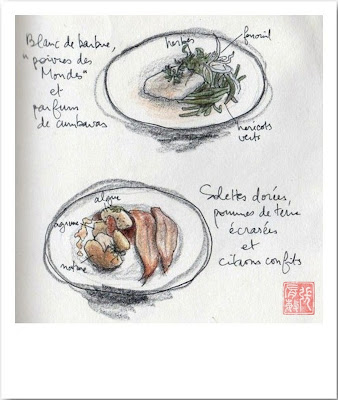 Blanc de barbue,
"poivres des
Mondes"
et
parfum
de cumbavas
herbes
fenouil
haricots
verts
algue
agrume
Solettes dorées,
pommes de terre
écrasées
et
citrons confits